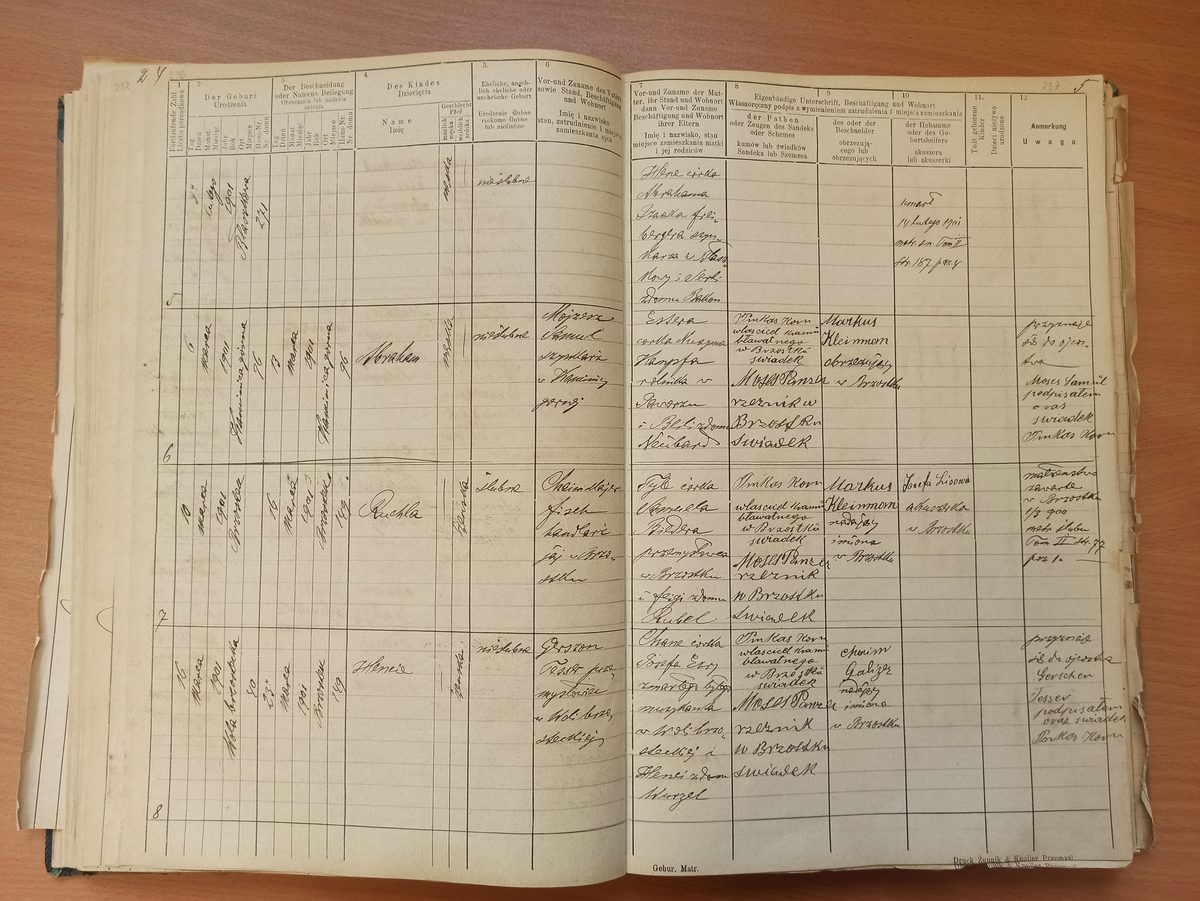 24
232
1
2
3
4
5.
6
Fortlaufende Zahl
Liczba porządkowa
Der Geburt
Urodzenia
Der Beschneidung
oder Namens Beilegung
Obrzezania lub nadania
imienia
Des Kindes
Dziecięcia
Eheliche, angeb-
lich eheliche oder
uneheliche Geburt
Urodzenie ślubne
rzekomo ślubne
lub nieślubne
Vor-und Zuname des Vaters
sowie Stand, Beschäftigung
und Wohnort
Imię i nazwisko
stan, zatrudnienie i miejsce
zamieszkania ojca
Tag
Dzień
Monat
Miesiąc
Jahr
Rok
Ort
Miejsce
Haus-Nr.
Nr. domu
Tag
Dzień
Monat
Miesiąc
Jahr
Rok
Ort
Miejsce
Haus-Nr.
Nr. domu
Name
Imię
Geschlecht
Płeć
männlich
męska
weiblich
żeńska
5
lutego
1901
271
męska
nieślubne
6
6
marca
1901
Kamienica górna
96
13
marca
1901
Kamienica górna
96
Abraham
męska
nieślubne
Mojżesz
Samuel
w Kamienicy
górnej
7
10
marca
1901
Brzostek
16
marca
1901
Brzostek
149
Ruchla
żeńska
ślubne
Chaim Majer
Fisch
handlarz
w Brzo-
stku
8
16
marca
1901
Wola brzostecka
40
23
marca
1901
Brzostek
149
Hencie
żeńska
nieślubne
Gerszon
prze-
mysłowiec
w Woli brzo-
steckiej
237
5
7
8
9
10
11.
12
Vor-und Zuname der Mut-
ter, ihr Stand und Wohnort
dann Vor-und Zuname
Beschäftigung und Wohnort
ihrer Eltern
Imię i nazwisko, stan
miejsce zamieszkania matki
i jej rodziców
Eigenhändige Unterschrift, Beschäftigung und Wohnort
Własnoręczny podpis z wymienieniem zatrudnienia i miejsca zamieszkania
der Pathen
oder Zeugen des Sandeks
oder Schemes
kumów lub świadków
Sandeka lub Szemesa
des oder der
Beschneider
obrzezują-
cego lub
obrzezujących
der Hebamme
oder des Ge-
burtshelfers
akuszera
lub akuszerki
Todt geborene
Kinder
Dzieci nieżywo
urodzone
Anmerkung
Uwaga
Hene córka
Abrahama
Izaaka Frei-
bergera
zmarł
14 lutego 1901
Tom II
str. 187 poz. 4
Estera
córka
rolnika w
i Beili z domu
Neubard
Pinkas Korn
właściciel kramu
bławatnego
w Brzostku
świadek
Moses Panzer
rzeźnik w
Brzostku
świadek
Markus
Kleinman
obrzezujący
w Brzostku
przyznaje
się do ojco-
stwa
Moses Samul
podpisałem
oraz
świadek
Pinkas Korn
córka
Samuela
w Brzostku
i Feigi z domu
Rubel
Pinkas Korn
właściciel kramu
bławatnego
w Brzostku
świadek
Moses Panzer
rzeźnik
w Brzostku
świadek
Markus
Kleinman
nadający
imiona
w Brzostku
Józefa Lisowa
akuszerka
w Brzostku
małżeństwo
zawarte
w Brzostku
1/3 900
metr. ślubu
Tom II str. 77
poz 1.
Chane córka
Józefa
zmarłego
muzykanta
w Woli brzo-
steckiej i
Henci z domu
Wurzel
Pinkas Korn
właściciel kramu
bławatnego
w Brzostku
świadek
Moses Panzer
rzeźnik
w Brzostku
świadek
Chaim
Galizer
nadający
imiona
w Brzostku
przyznaje
się do ojcostwa
Gerschon
Tesser
podpisałem
oraz świadek
Pinkas Korn
Gebur. Matr.
Druck Żupnik & Knoller Przemyśl